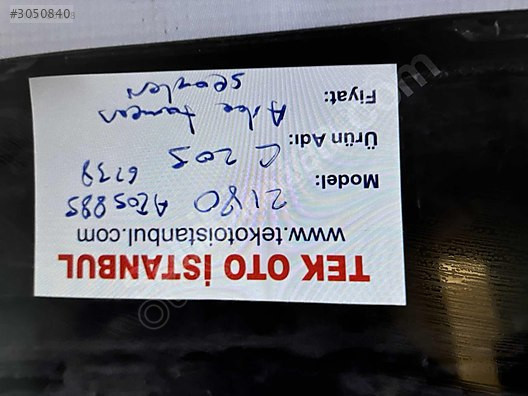 #3050840
TEK OTO İSTANBUL
www.tekotoistanbul.com
Model: 2180 A205885
6738
Ürün Adı: C 205
Arka tampon
Fiyat: